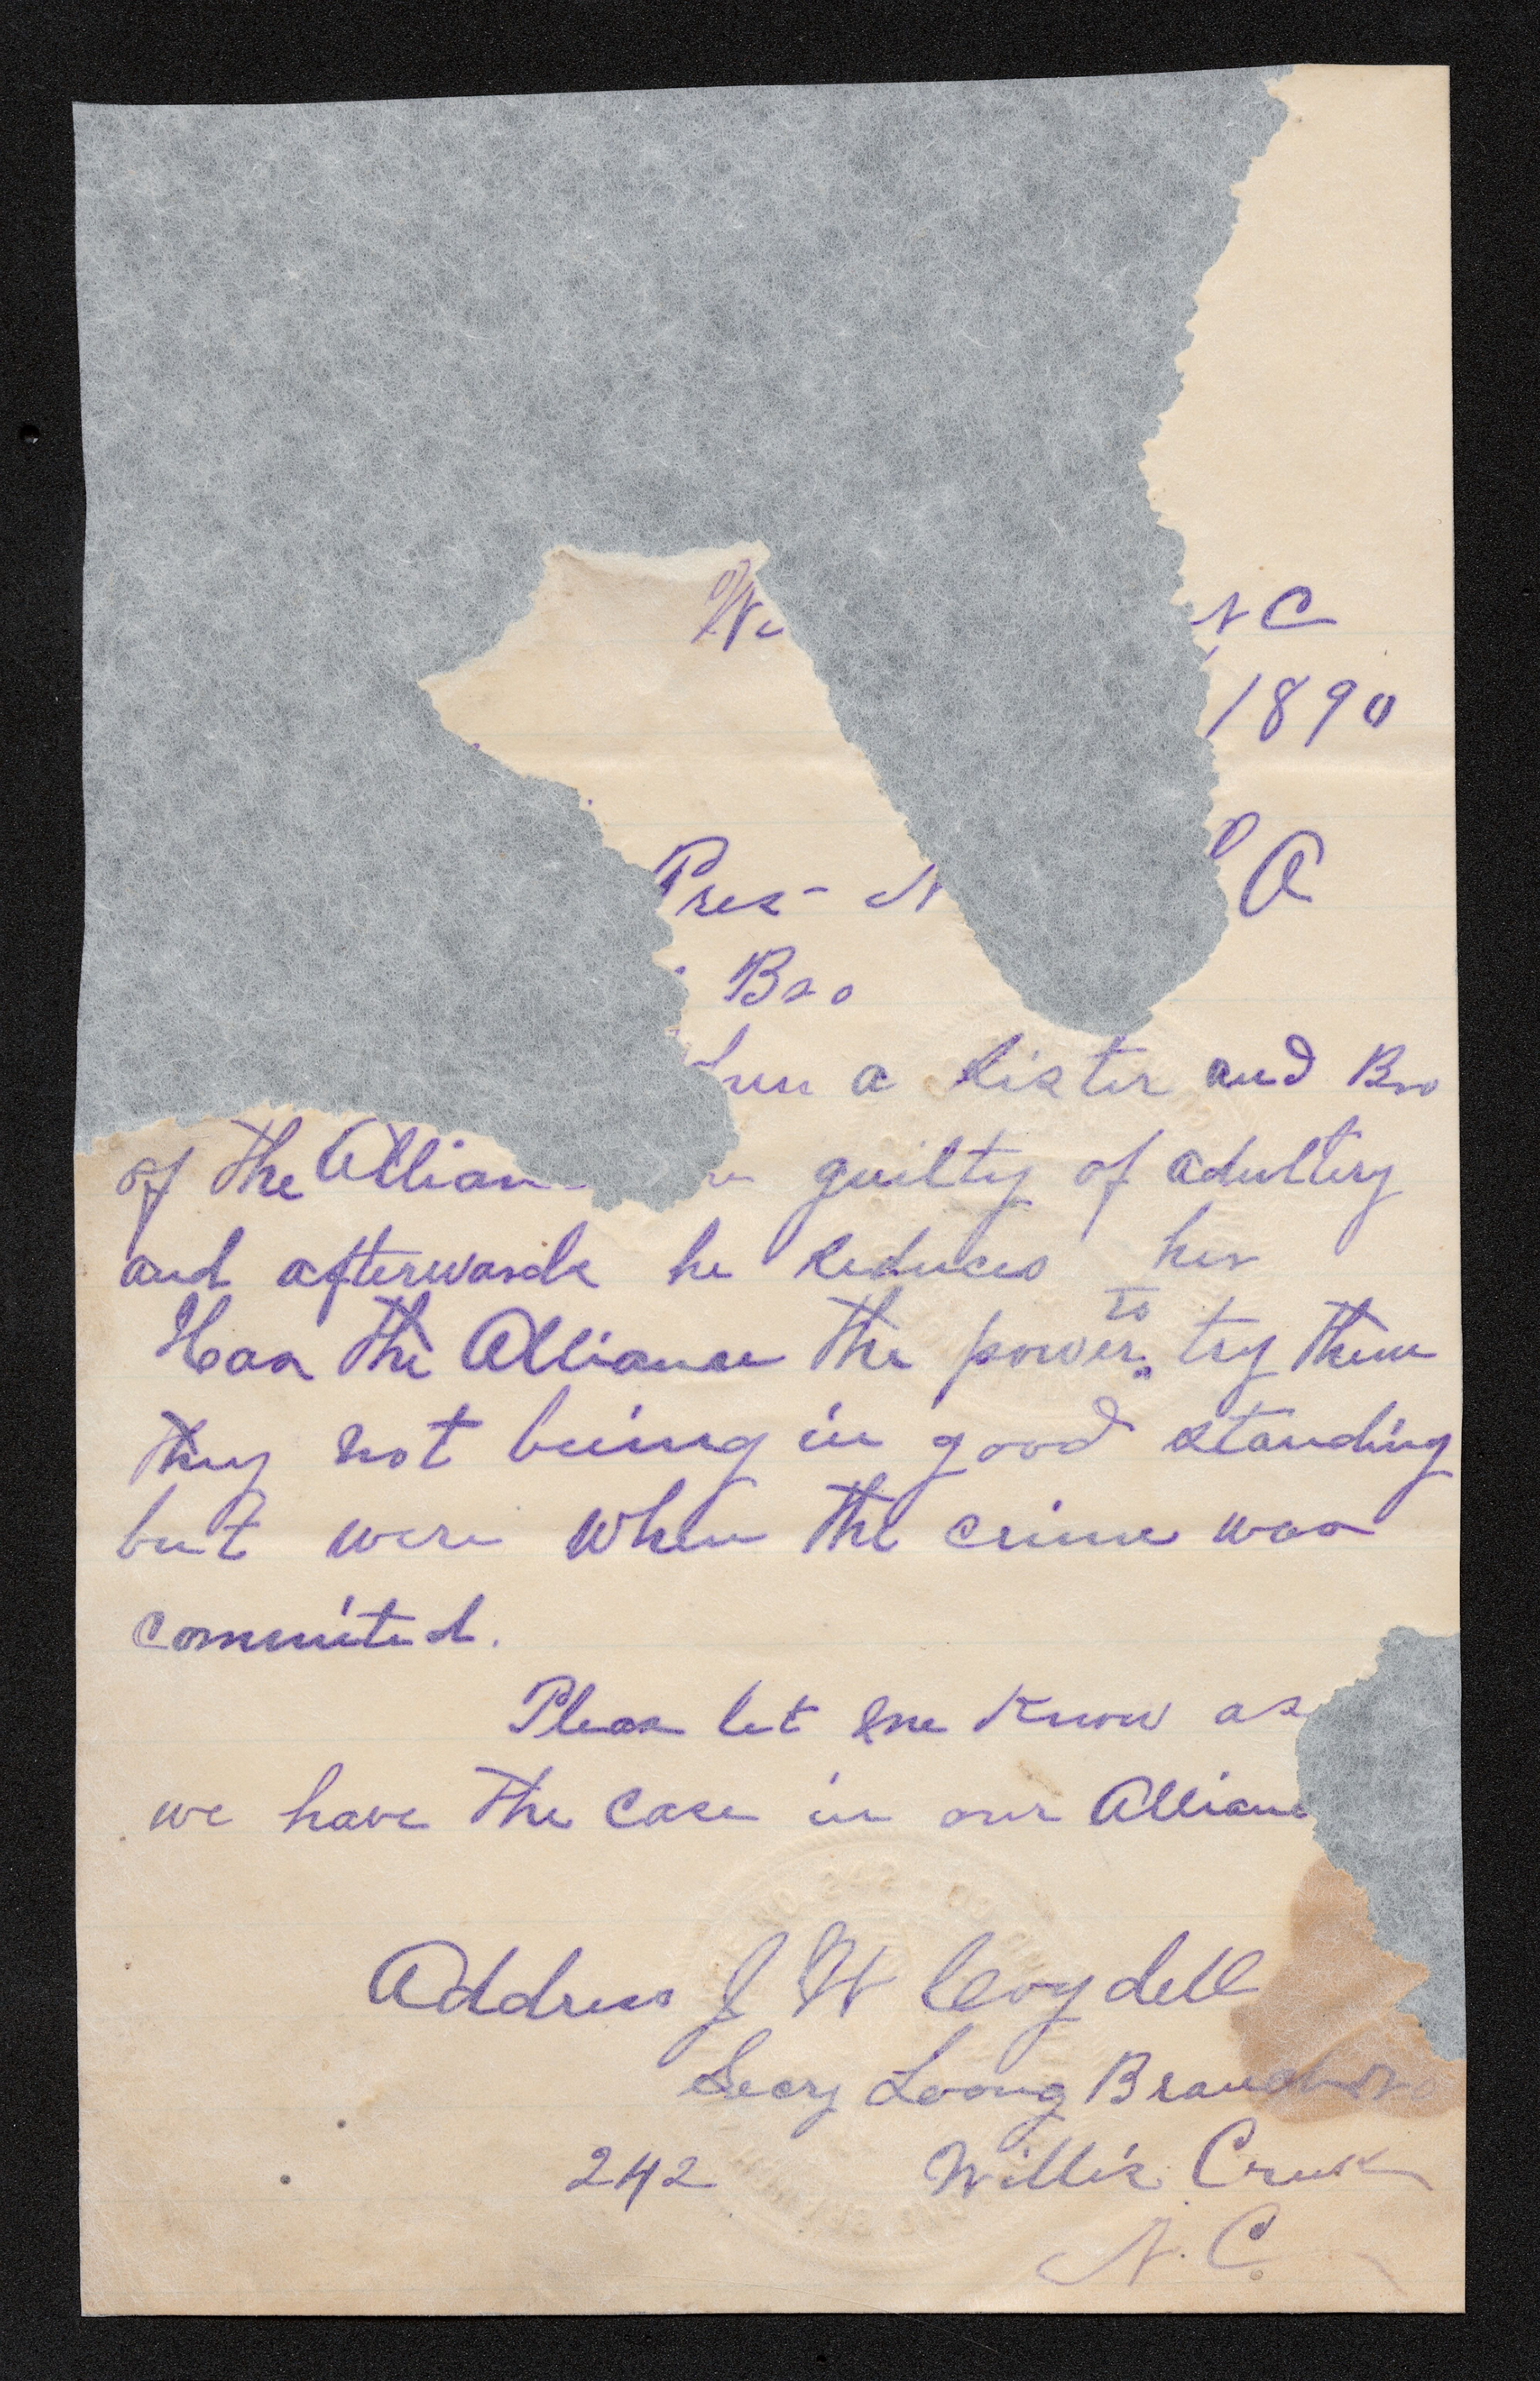 N C
1890
Pres- N A
Bro
a Sister and Bro
of the Allian guilty of adultery
and afterwards he seduces her
Has the Alliance the power to try them
they not being in good standing
but were when the crime was
commited.
Pleas let me know as
we have the case in our Allianc
Address J W Croydell
Secy Loong Branch No
242 Willis Creek
N. C.